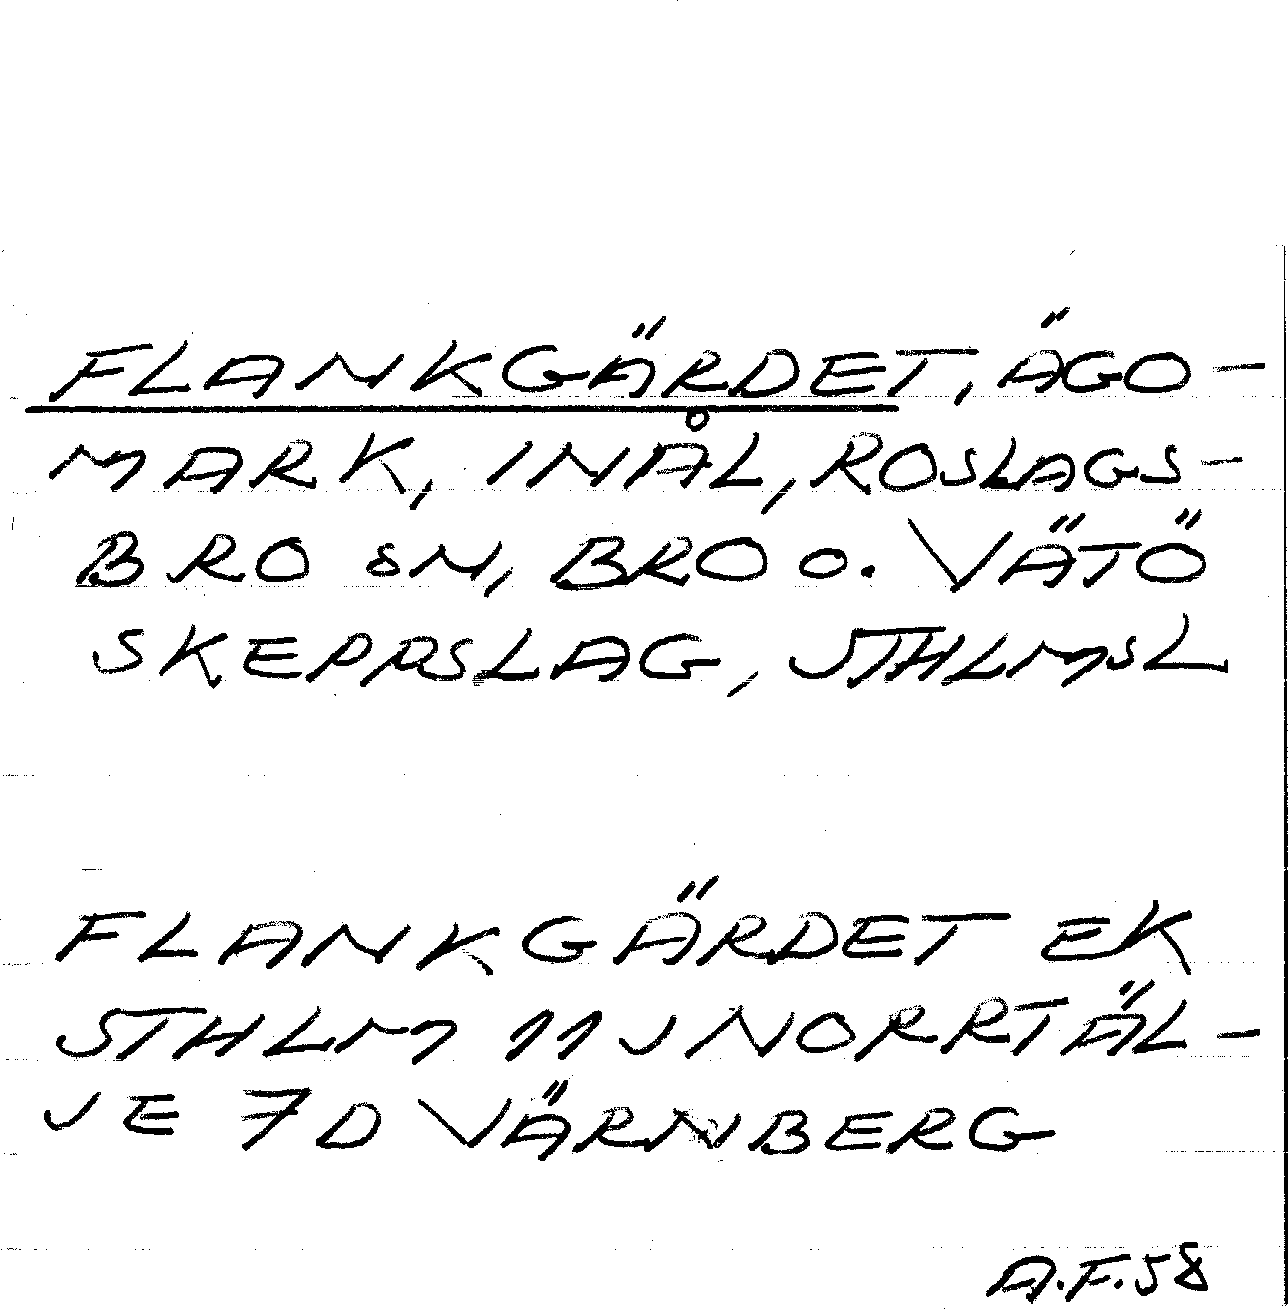 FLANKGÄRDET, ÄGO-
MARK, INÅL, ROSLAGS-
BRO SN, BRO O. VÄTÖ
SKEPPSLAG, STHLMSL
FLANKGÄRDET EK
STHLM 11J NORRTÄL-
JE 7D VÄRNBERG
A.F.58